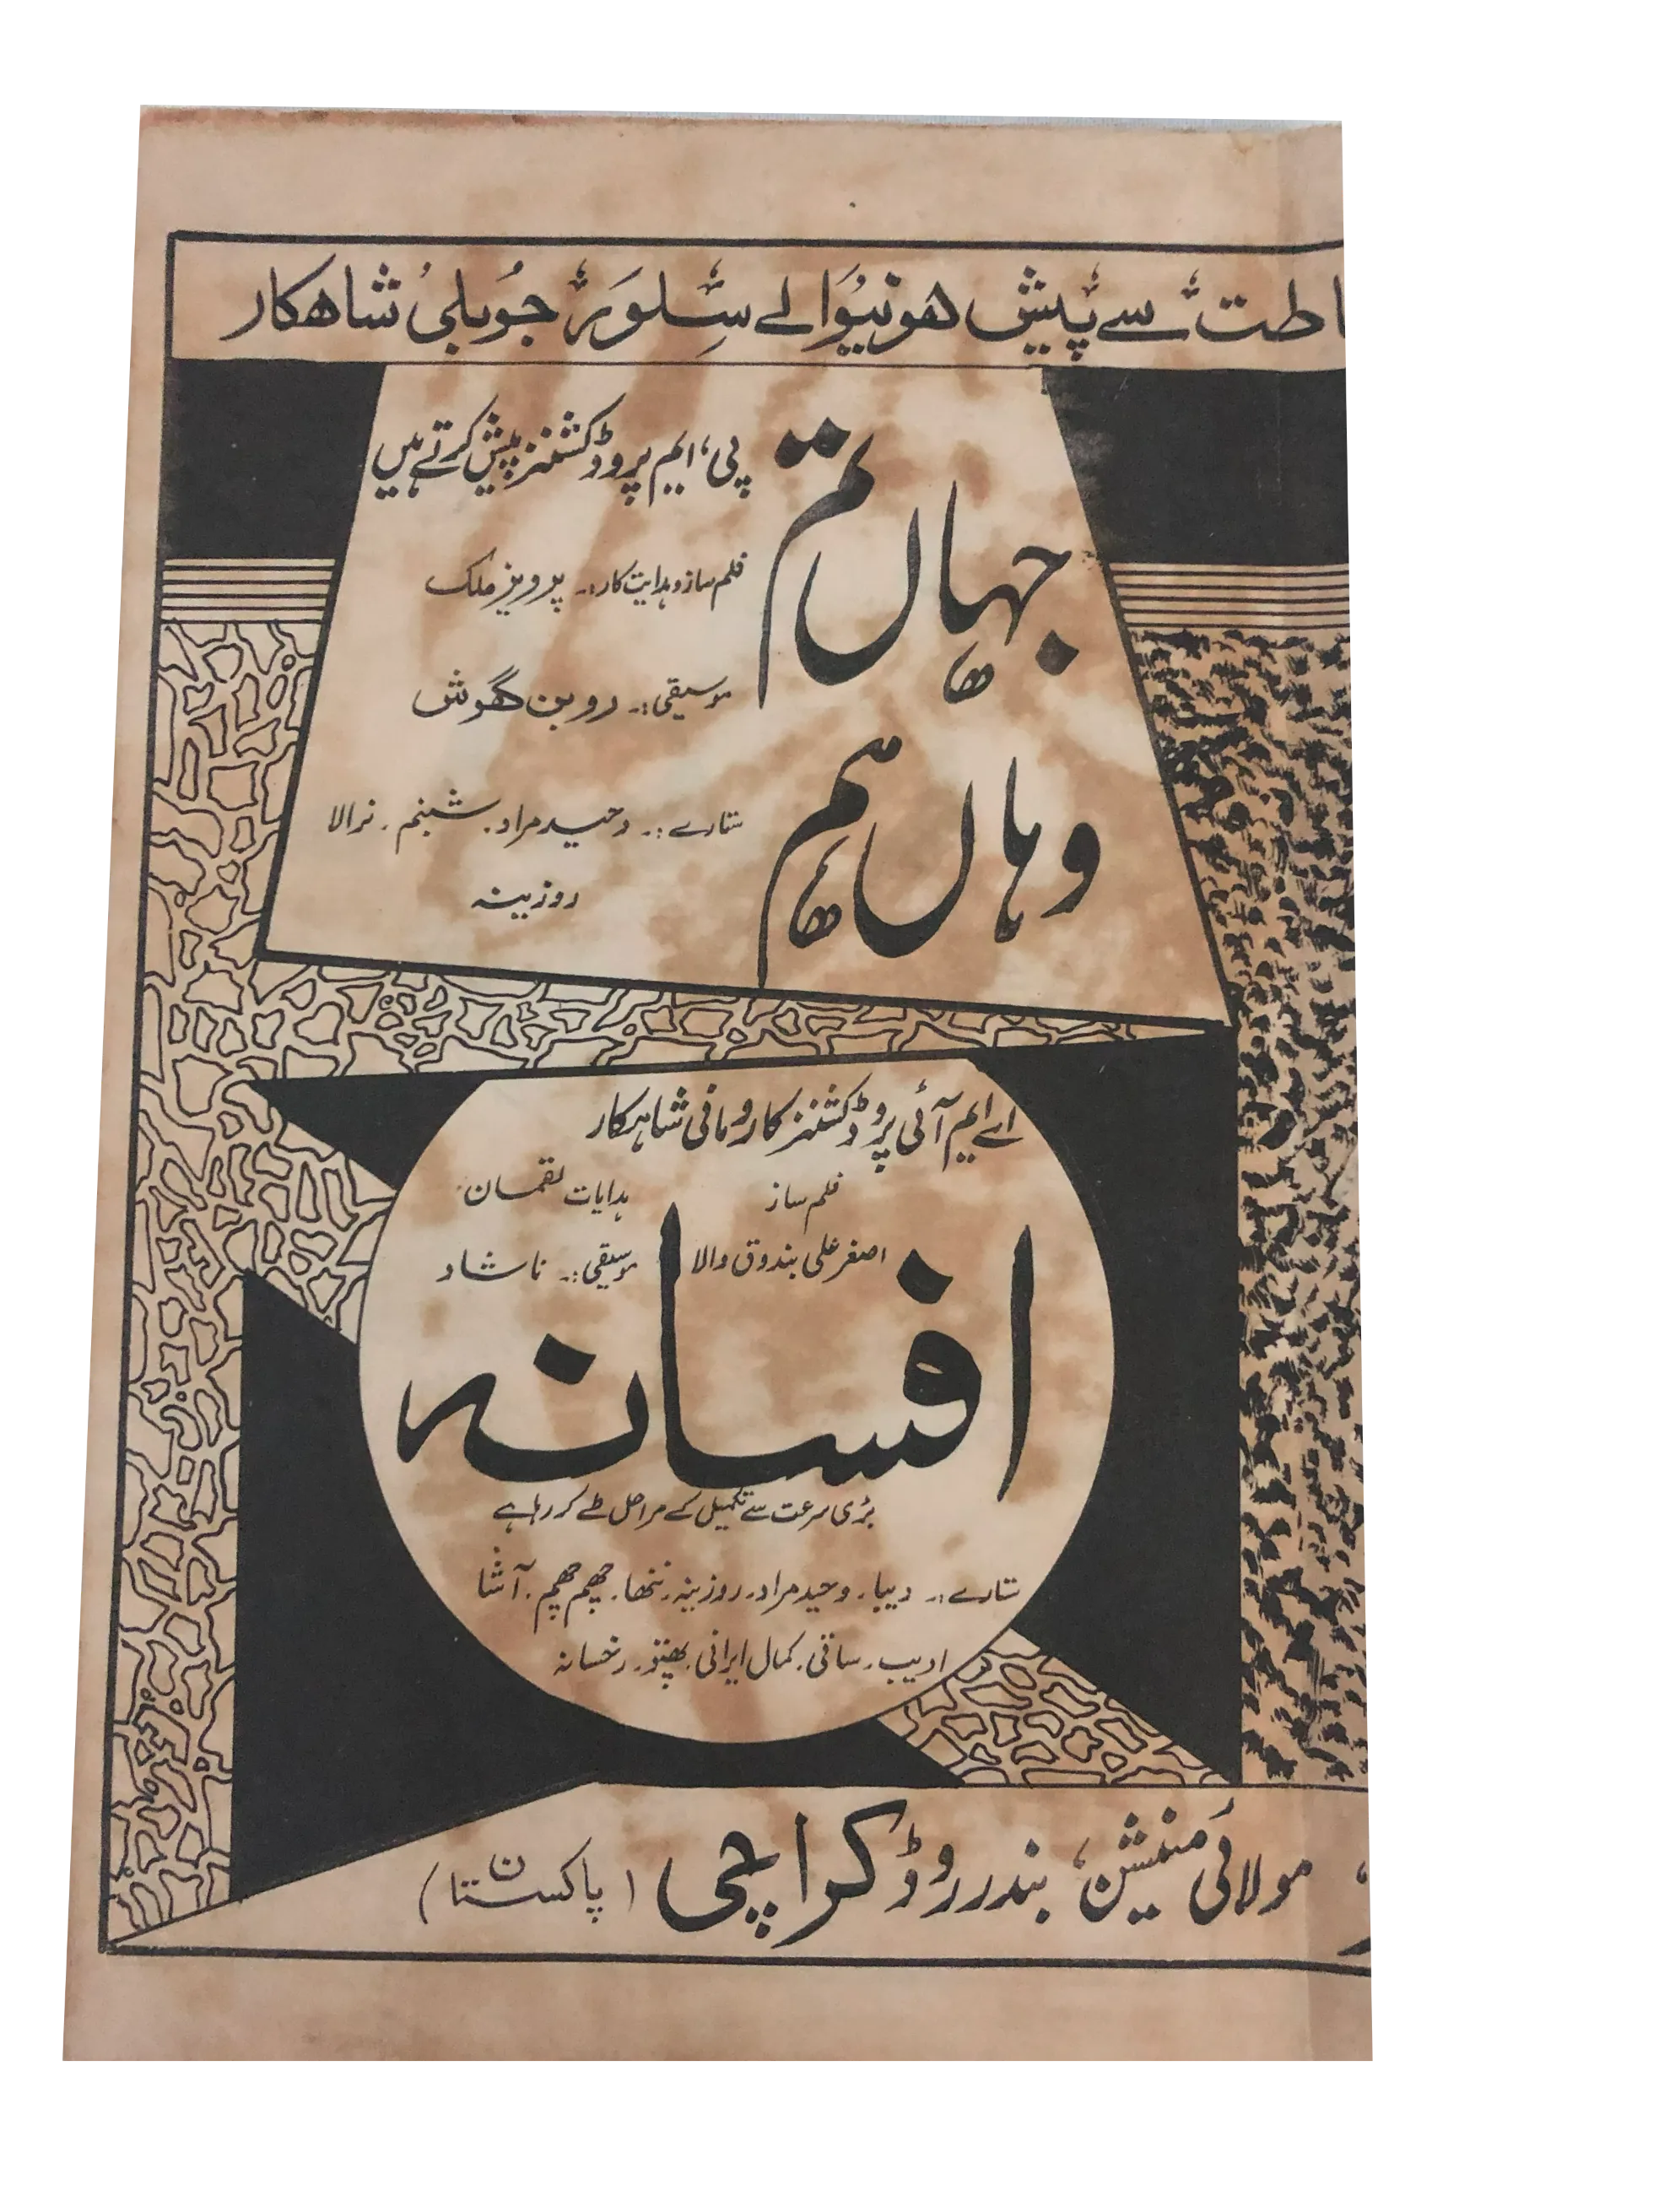 اطت سے پیش ھونیوالے سِلور جُوبلی شاھکار
پی، ایم پروڈکشنز پیش کرتے ہیں
جہاں تم
وہاں ہم
فلم ساز و ہدایت کار:۔ پرویز ملک
موسیقی:۔ روبن گھوش
ستارے:۔ وحید مراد۔ شبنم۔ نرالا
روزینہ
اے ایم آئی پروڈکشنز کا رومانی شاہکار
فلم ساز
اصغر علی بندوق والا
ہدایات لقمان
موسیقی:۔ ناشاد
افسانہ
بڑی سرعت سے تکمیل کے مراحل طے کر رہا ہے
ستارے:۔ دیبا۔ وحید مراد۔ روزینہ۔ ننھا۔ چھم چھم۔ آشا
ادیب۔ ساقی۔ کمال ایرانی۔ بھنتو۔ رخسانہ
مولائی منشن، بندر روڈ کراچی (پاکستان)